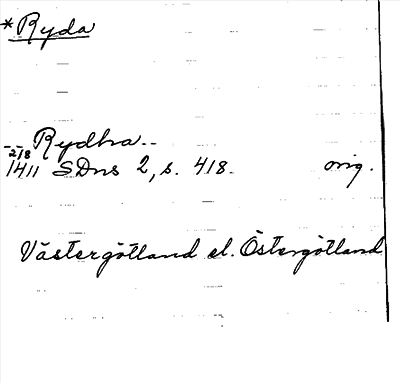 *Ryda
Rydhra--
2/8
1411 SDns 2, s. 418. orig.
Västergötland el. Östergötland